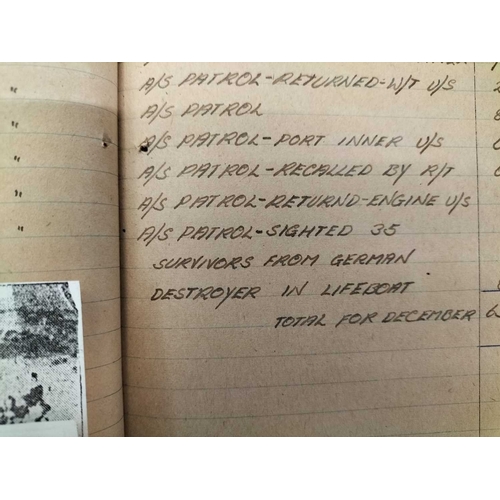 A/S PATROL-RETURNED-W/T U/S
" A/S PATROL
" A/S PATROL-PORT INNER U/S
" A/S PATROL-RECALLED BY R/T
" A/S PATROL-RETURND-ENGINE U/S
" A/S PATROL-SIGHTED 35
SURVIVORS FROM GERMAN
DESTROYER IN LIFEBOAT
TOTAL FOR DECEMBER